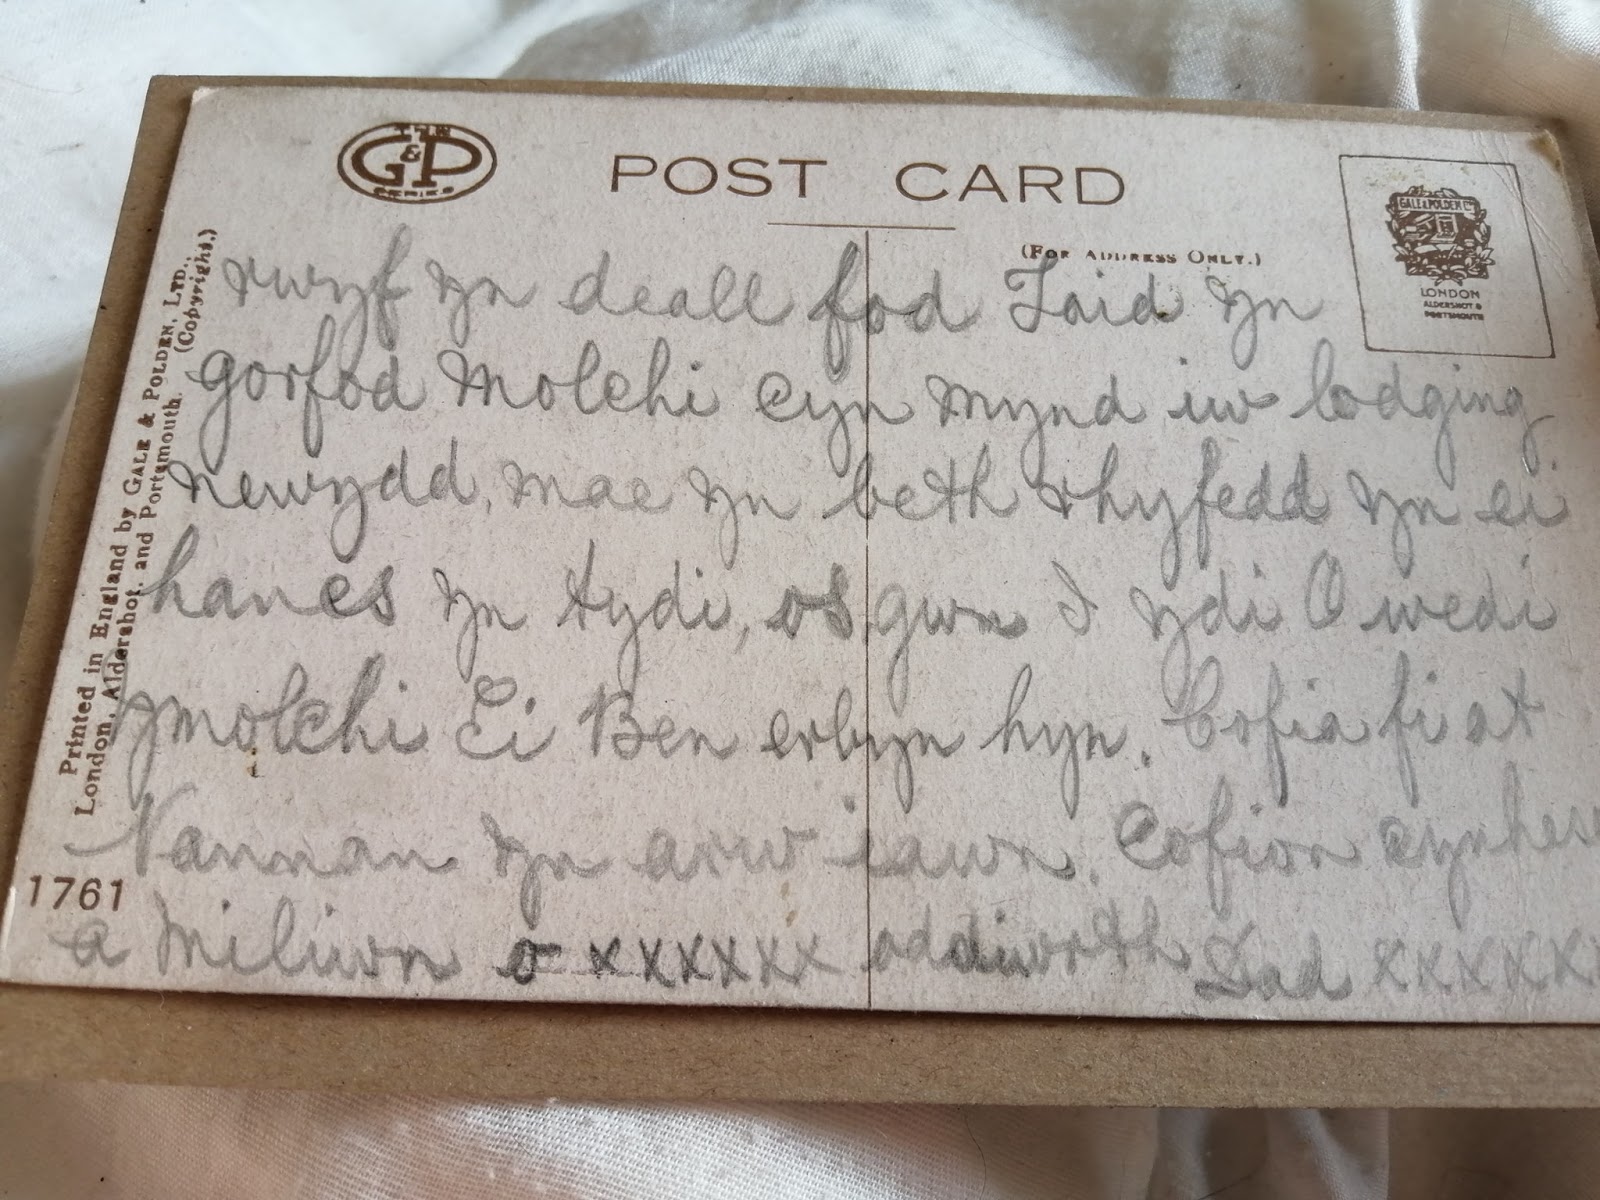 THE G & P SERIES
POST CARD
(FOR ADDRESS ONLY.)
GALE & POLDEN LTD
LONDON
ALDERSHOT &
PORTSMOUTH
Printed in England by GALE & POLDEN, LTD.,
London, Aldershot, and Portsmouth. (Copyright.)
rwyf yn deall fod Taid yn
gorfod molchi cyn mynd iw lodging
newydd, mae yn beth rhyfedd yn ei
hanes yn tydi, os gwn I ydi O wedi
ymolchi Ei Ben erbyn hyn. Cofia fi at
Nannan yn arw iawn. Cofion cynhes
1761
a miliwn o xxxxxx oddiwrth Dad xxxxxx